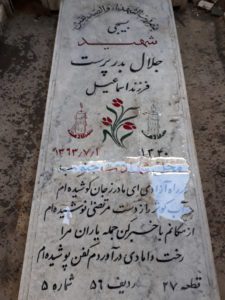 بسیجی
شهید
جلال بدرپرست
فرزند اسماعیل
۱۳۴۰
۱۳۶۳/۷/۱
در راه آزادی ای مادر ز جان کوشیده‌ام
آب کوثر را ز دست مرتضی نوشیده‌ام
از مکانم با خبر کن جمله یاران مرا
رخت دامادی در آوردم کفن پوشیده‌ام
قطعه ۲۷ ردیف ۵۶ شماره ۵